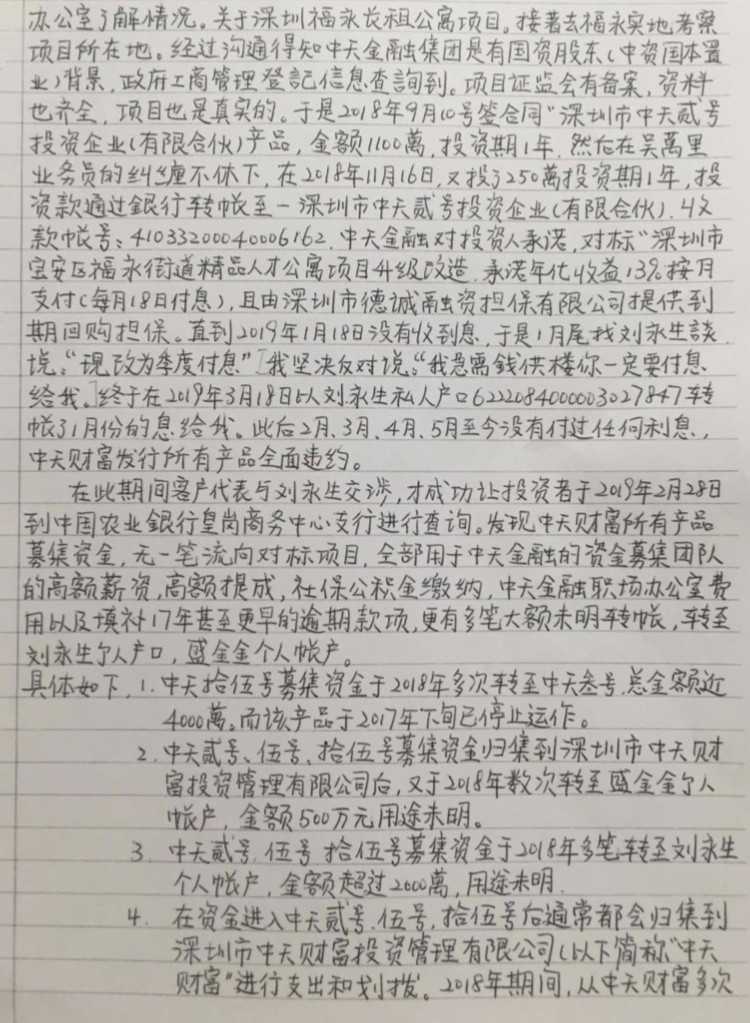 办公室了解情况。关于深圳福永长租公寓项目。接著去福永实地考察
项目所在地。经过沟通得知中天金融集团是有国资股东(中资国本置
业)背景，政府工商管理登記信息查詢到。项目证监会有备案，资料
也齐全，项目也是真实的。于是2018年9月10号签合同"深圳市中天贰号
投资企业(有限合伙)产品，金额1100萬，投资期1年.然后在吴萬里
业务员的纠缠不休下，在2018年11月16日，又投了250萬投资期1年，投
资款通过銀行转帐至一深圳市中天贰号投资企业(有限合伙).收
款帐号：41033200040006162.中天金融对投资人承诺，对标"深圳市
宝安区福永街道精品人才公寓项目升级改造.承诺年化收益13%按月
支付(每月18日付息)，且由深圳市德诚融资担保有限公司提供到
期回购担保。直到2019年1月18日没有收到息，于是1月尾找刘永生談.
说："现改为季度付息"[我坚决反对说："我急需錢供楼你一定要付息
给我。]终于在2019年3月18日以刘永生私人户口6222084000003027847转
帐了1月份的息给我。此后2月、3月、4月、5月至今没有付过任何利息，
中天财富发行所有产品全面违约。
在此期间客户代表与刘永生交涉，才成功让投资者于2019年2月28日
到中国农业銀行皇岗商务中心支行进行查询。发现中天财富所有产品
募集资金，无一笔流向对标项目，全部用于中天金融的资金募集团队
的高额薪资，高额提成，社保公积金缴纳，中天金融职场办公室费
用以及填补17年甚至更早的逾期款项，更有多笔大额未明转帐，转至
刘永生个人户口，盛金金个人帐户。
具体如下，1.中天拾伍号募集资金于2018年多次转至中天叁号.总金额近
4000萬。而该产品于2017年下旬已停止运作。
2.中天贰号、伍号、拾伍号募集资金归集到深圳市中天财
富投资管理有限公司后，又于2018年数次转至盛金金个人
帐户，金额500万元用途未明。
3.中天贰号.伍号.拾伍号募集资金于2018年多笔转至刘永生
个人帐户，金额超过2000萬，用途未明.
4.在资金进入中天贰号.伍号，拾伍号后通常都会归集到
深圳市中天财富投资管理有限公司(以下简称"中天
财富"进行支出和划拨。2018年期间，从中天财富多次